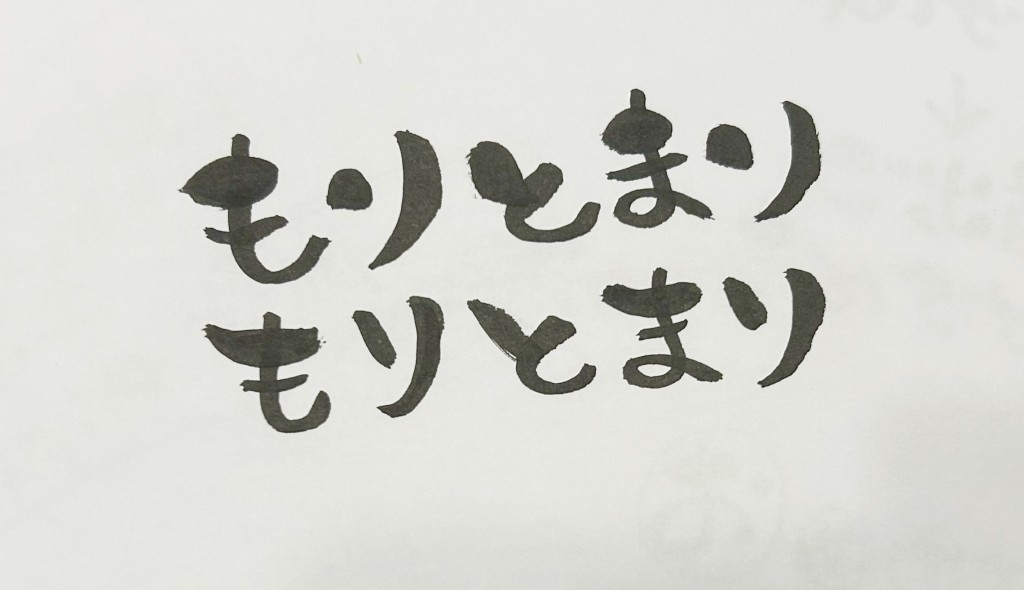 もりとまり
もりとまり